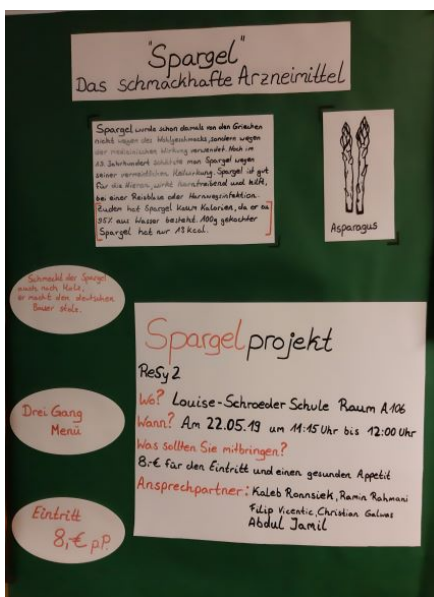 "Spargel"
Das schmackhafte Arzneimittel
Spargel wurde schon damals von den Griechen
nicht wegen des Wohlgeschmacks, sondern wegen
der medizinischen Wirkung verwendet. Noch im
19. Jahrhundert schätzte man Spargel wegen
seiner vermeintlichen Heilwirkung. Spargel ist gut
für die Nieren, wirkt harntreibend und hilft,
bei einer Reizblase oder Harnwegsinfektion.
Zudem hat Spargel kaum Kalorien, da er zu
95% aus Wasser besteht. 100g gekochter
Spargel hat nur 13 kcal.
Asparagus
Schmeckt der Spargel
auch nach Holz,
er macht den deutschen
Bauer stolz.
Spargelprojekt
ReSy2
Wo? Louise-Schroeder Schule Raum A106
Wann? Am 22.05.19 um 11:15 Uhr bis 12:00 Uhr
Was sollten Sie mitbringen?
8.-€ für den Eintritt und einen gesunden Appetit
Ansprechpartner: Kaleb Ronnsiek, Ramin Rahmani
Filip Vicentic, Christian
Abdul Jamil
Drei Gang
Menü
Eintritt
8,-€ p.P.